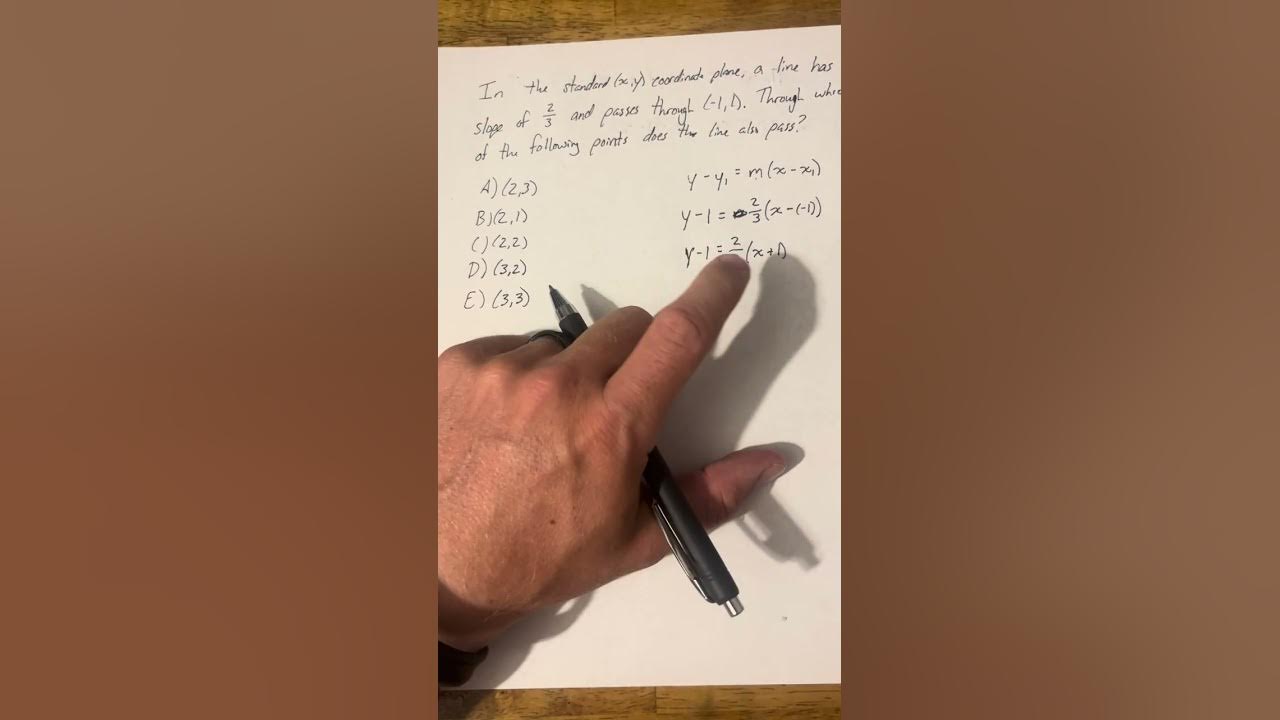 In the standard (x,y) coordinate plane, a line has
slope of 2/3 and passes through (-1,1). Through
of the following points does the line also pass?
A) (2,3)
B) (2,1)
C) (2,2)
D) (3,2)
E) (3,3)
y - y₁ = m(x - x₁)
y - 1 = 2/3(x - (-1))
y - 1 = 2/ (x + 1)